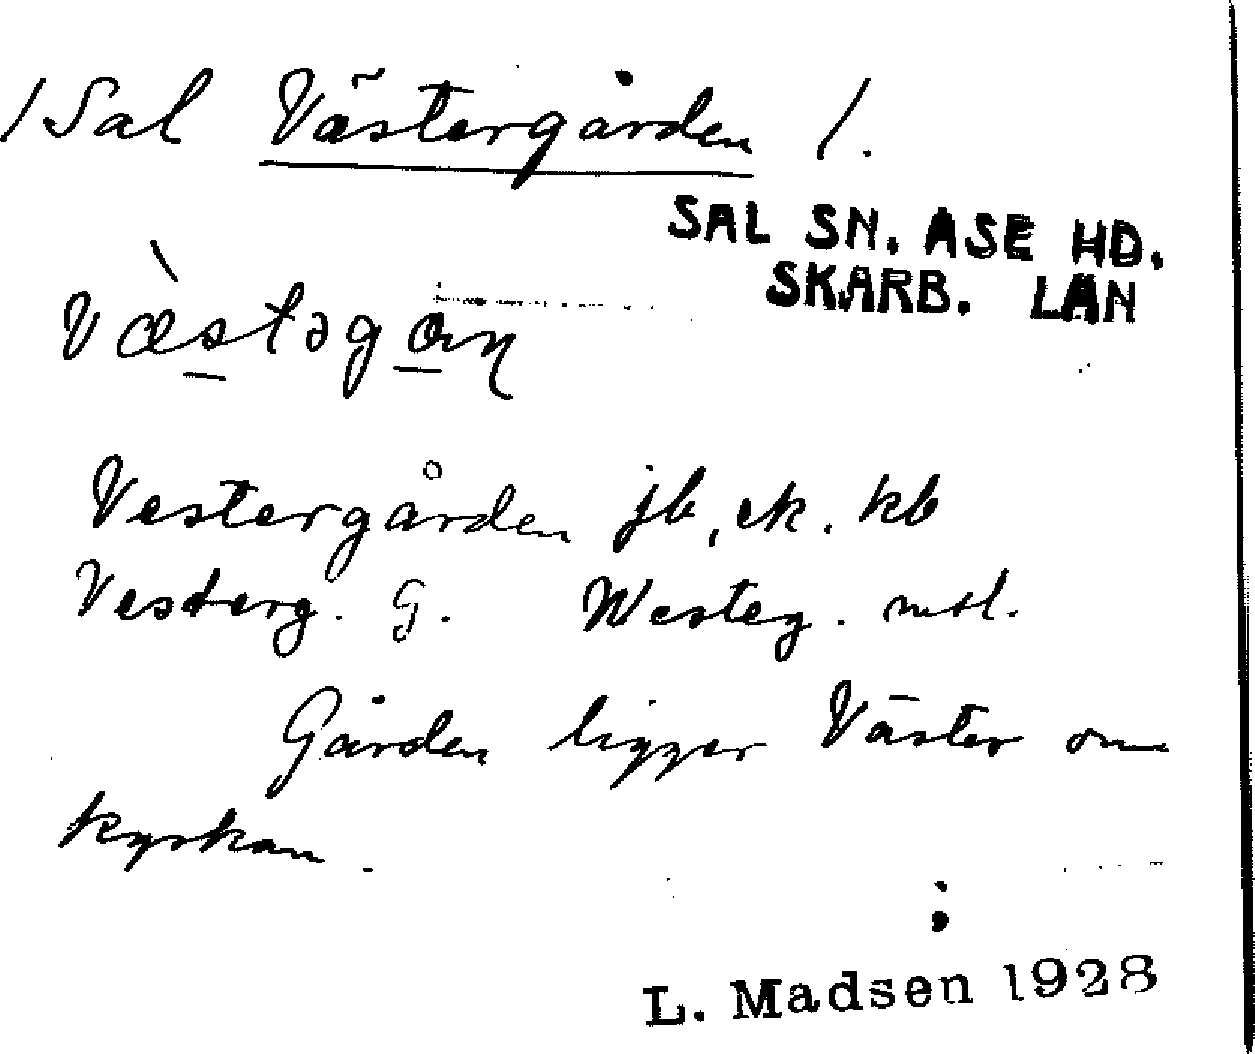 /Sal Västergården /.
SAL SN. ASE HD.
SKARB. LÄN
Væ̀stəgaɳ
Vestergården jb, ek. kb
Vesterg. G. Westeg. mtl.
Gården ligger Väster om
kyrkan.
L. Madsen 1928